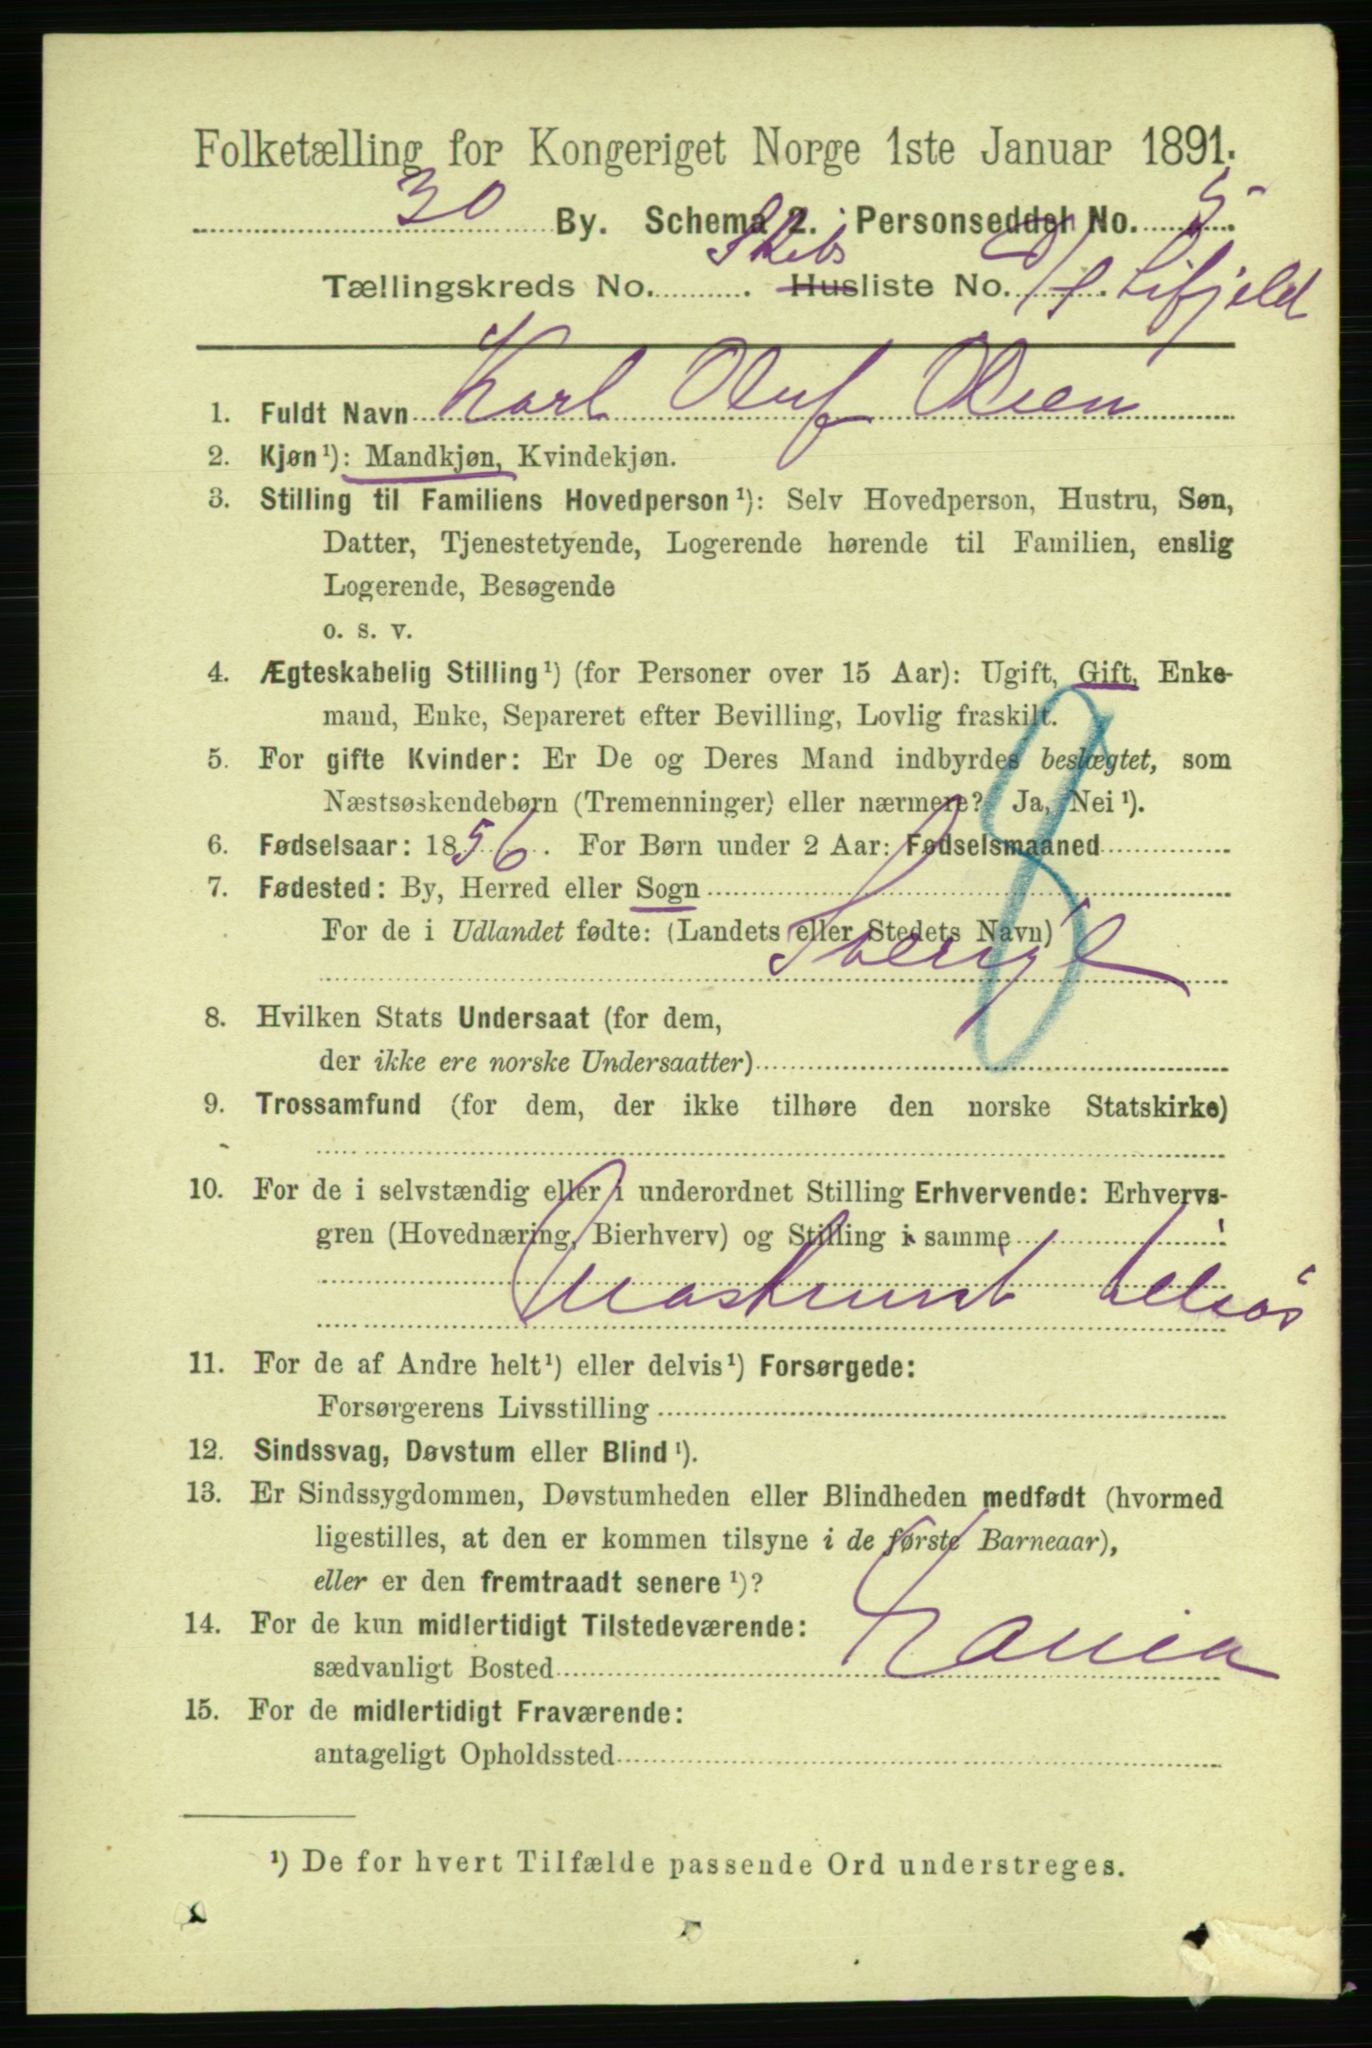 Folketælling for Kongeriget Norge 1ste Januar 1891.
30 By. Schema 2. Personseddel No. 5.
Tællingskreds No. . Skibs Husliste No. D/S Lifjeld
1. Fuldt Navn Karl Oluf
2. Kjøn¹): Mandkjøn, Kvindekjøn.
3. Stilling til Familiens Hovedperson¹): Selv Hovedperson, Hustru, Søn,
Datter, Tjenestetyende, Logerende hørende til Familien, enslig
Logerende, Besøgende
o. s. v.
4. Ægteskabelig Stilling¹) (for Personer over 15 Aar): Ugift, Gift, Enke-
mand, Enke, Separeret efter Bevilling, Lovlig fraskilt.
5. For gifte Kvinder: Er De og Deres Mand indbyrdes beslægtet, som
Næstsøskendebørn (Tremenninger) eller nærmere? Ja, Nei¹).
6. Fødselsaar: 1856. For Børn under 2 Aar: Fødselsmaaned
7. Fødested: By, Herred eller Sogn
For de i Udlandet fødte: (Landets eller Stedets Navn)
Sverige
8. Hvilken Stats Undersaat (for dem,
der ikke ere norske Undersaatter)
9. Trossamfund (for dem, der ikke tilhøre den norske Statskirke)
10. For de i selvstændig eller i underordnet Stilling Erhvervende: Erhvervs-
gren (Hovednæring, Bierhverv) og Stilling i samme
Maskinist
11. For de af Andre helt¹) eller delvis¹) Forsørgede:
Forsørgerens Livsstilling
12. Sindssvag, Døvstum eller Blind¹).
13. Er Sindssygdommen, Døvstumheden eller Blindheden medfødt (hvormed
ligestilles, at den er kommen tilsyne i de første Barneaar),
eller er den fremtraadt senere¹)?
14. For de kun midlertidigt Tilstedeværende:
sædvanligt Bosted
15. For de midlertidigt Fraværende:
antageligt Opholdssted
¹) De for hvert Tilfælde passende Ord understreges.